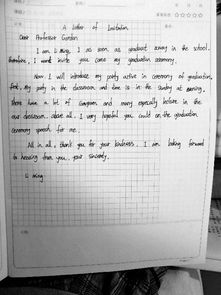 A Letter of Invitation
Dear Professor Gordon
I am Li Ming, I as soon as graduat away in the school.
therefore, I want invite you come my graduation ceremony.
Now I will introduce my party active in ceremony of graduation,
first, my party in the classroom and time is in the Sunday at evening,
There have a lot of program and many especially lecture in the
our classroom. above all. I very hopeful you could on the graduation
ceremony speech for me.
All in all, thank you for your kindness. I am looking forward
to hearing from you. your sincerely.
Li ming